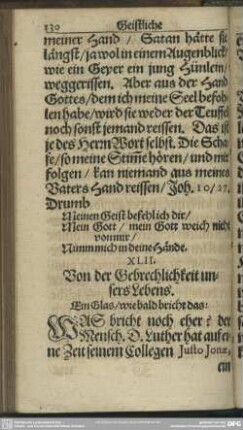 130 Geistliche
meiner Hand / Satan hätte sie
längst / ja wol in einem Augenblick /
wie ein Geyer ein jung Hünlein /
weggerissen. Aber aus der Hand
Gottes / dem ich meine Seel befoh-
len habe / wird sie weder der Teuffel
noch sonst jemand reissen. Das ist
je des Herrn Wort selbst. Die Scha-
fe / so meine Stimē hören / und mir
folgen / kan niemand aus meines
Vaters Hand reissen / Joh. 10/27.
Drumb
Meinen Geist befehlich dir /
Mein Gott / mein Gott weich nicht
von mir /
Nimm mich in deine Hände.
XLII.
Von der Gebrechlichkeit un-
sers Lebens.
Ein Glas / wie bald bricht das!
WAS bricht noch eher? der
Mensch. D. Luther hat auf ei-
ne Zeit seinem Collegen Justo Jonæ,
ein